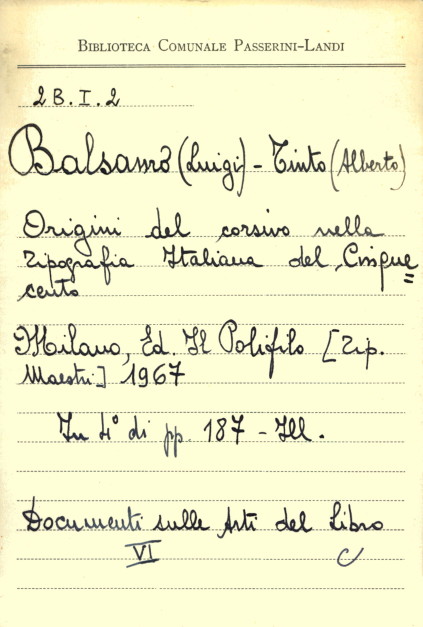 BIBLIOTECA COMUNALE PASSERINI-LANDI
2B.I.2
Balsamo (Luigi) - Tinto (Alberto)
Origini del corsivo nella
tipografia Italiana del Cinque=
cento
Milano, Ed. Il Polifilo [tip.
Maestri] 1967
In 4° di pp. 187 - Ill.
Documenti sulle Arti del Libro
VI C